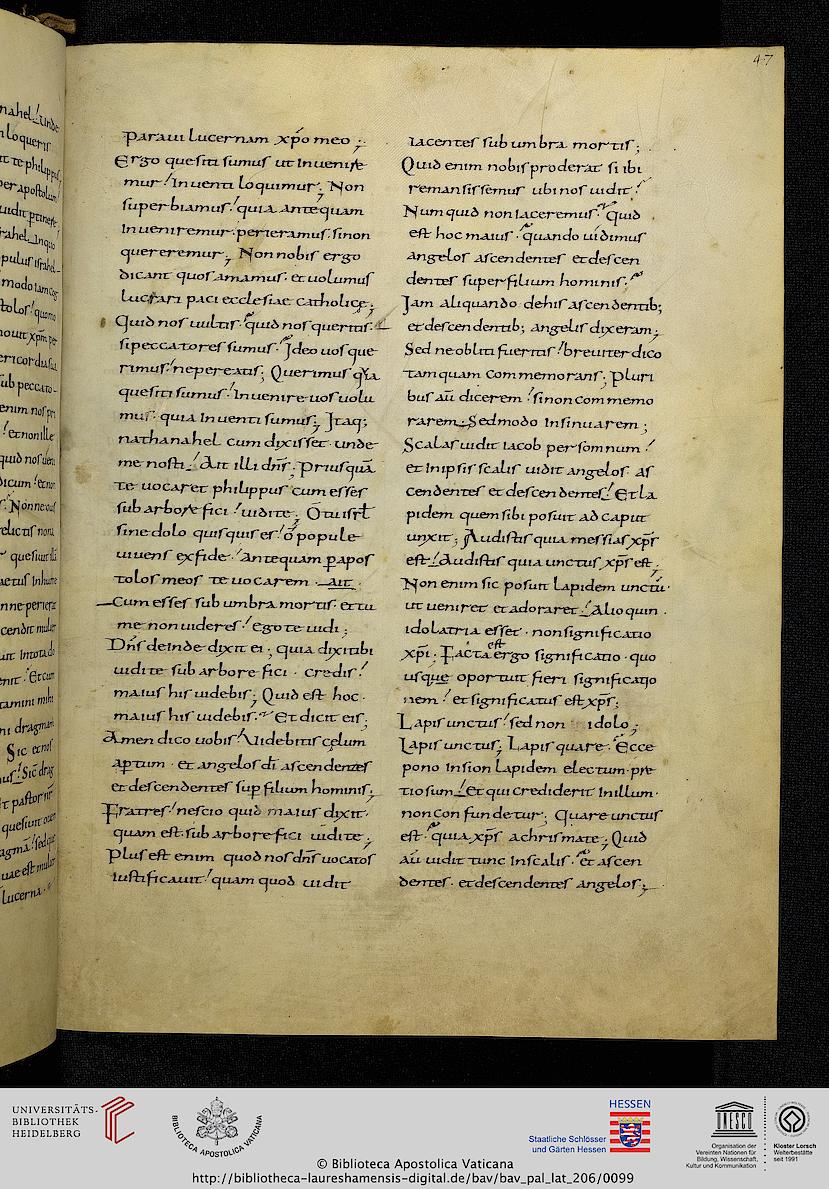 47
paraui lucernam xp̄o meo ;
Ergo quesiti sumus ut inuenire
mur! Inuenti loquimur; Non
superbiamus! quia antequam
inueniremur. perieramus. sinon
quereremur; Non nobis ergo
dicant quos amamus. et uolumus
lucrari paci ecclesiae catholice;
Quid nos uultis. quid nos queritis.
si peccatores sumus. Ideo uos que
rimus! ne pereatis; Querimus quia
quesiti sumus! Inuenire uos uolu
mus. quia inuenti sumus; Itaq;
nathanahel cum dixisset unde
me nosti! Ait illi dn̄s; Priusquā
te uocaret philippus cum esses
sub arbore fici! uidi te; O tu isrl̄
sine dolo quisquis es! o popule
uiuens ex fide! antequam p apos
tolos meos te uocarem. ait
Cum esses sub umbra mortis. et tu
me non uideres! ego te uidi;
Dn̄s deinde dixit ei; quia dixi tibi
uidi te sub arbore fici. credis!
maius his uidebis; Quid est hoc.
maius his uidebis. Et dicit eis;
Amen dico uobis! Uidebitis cęlum
aptum. et angelos dī ascendentes
et descendentes sup filium hominis;
Fratres! nescio quid maius dixit.
quam est. sub arbore fici uidi te;
Plus est enim quod nos dn̄s uocatos
iustificauit! quam quod uidit
iacentes sub umbra mortis;
Quid enim nobis proderat si ibi
remansissemus ubi nos uidit!
Numquid non iaceremus. Quid
est hoc maius. quando uidimus
angelos ascendentes et descen
dentes super filium hominis.
Iam aliquando de his ascendentib;
et descendentib; angelis dixeram;
Sed ne obliti fueritis! breuiter dico
tamquam commemorans; Pluri
bus aū dicerem! si non commemo
rarem. Sed modo insinuarem;
Scalas uidit iacob per somnum!
et in ipsis scalis uidit angelos as
cendentes et descendentes! Et la
pidem quem sibi posuit ad caput
unxit; Audistis quia messias xp̄s
est! Audistis quia unctus xp̄s est;
Non enim sic posuit lapidem unctū.
ut ueniret et adoraret! Alioquin
idolatria esset. non significatio
xp̄i; Facta est ergo significatio. quo
usque oportuit fieri significatio
nem! et significatus est xp̄s;
Lapis unctus! sed non idolo;
Lapis unctus; Lapis quare. Ecce
pono in sion lapidem electum pre
tiosum! Et qui crediderit in illum.
non confundetur; Quare unctus
est. quia xp̄s a chrismate; Quid
aū uidit tunc in scalis. et ascen
dentes. et descendentes angelos;
UNIVERSITÄTS-
BIBLIOTHEK
HEIDELBERG
BIBLIOTECA APOSTOLICA VATICANA
HESSEN
Staatliche Schlösser
und Gärten Hessen
UNESCO
Organisation der
Vereinten Nationen für
Bildung, Wissenschaft,
Kultur und Kommunikation
Kloster Lorsch
Welterbestätte
seit 1991
© Biblioteca Apostolica Vaticana
http://bibliotheca-laureshamensis-digital.de/bav/bav_pal_lat_206/0099